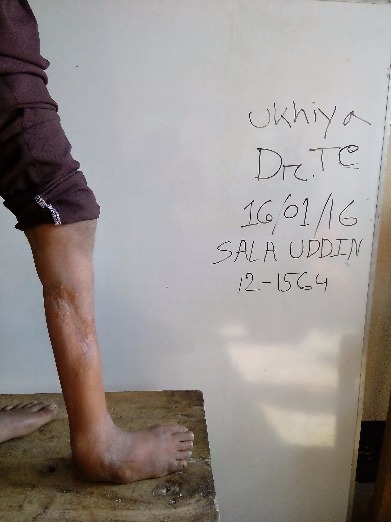 Ukhiya
Dr. TC
16/01/16
SALA UDDIN
12-1564